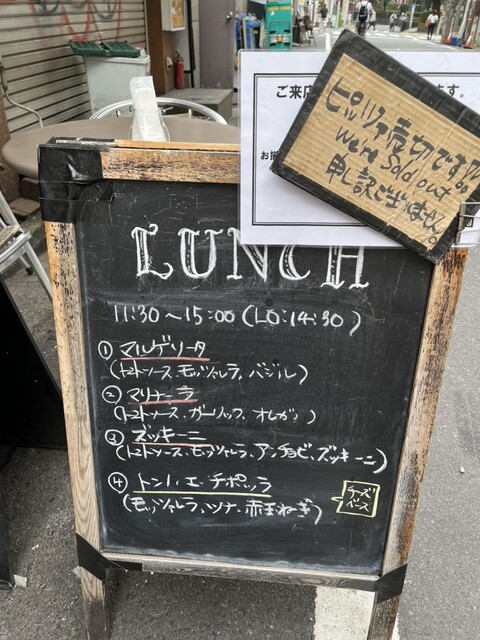 ご来店
ます。
お
ピッツァ売切です!!
were Sold out
申し訳ございません。
LUNCH
11:30～15:00 (LO:14:30)
① マルゲリータ
(トマトソース、モッツァレラ、バジル)
② マリナーラ
(トマトソース、ガーリック、オレガノ)
③ ズッキーニ
(トマトソース、モッツァレラ、アンチョビ、ズッキーニ)
④ トンノ・エ・チポッラ
(モッツァレラ、ツナ、赤玉ねぎ)
チーズ
ベース